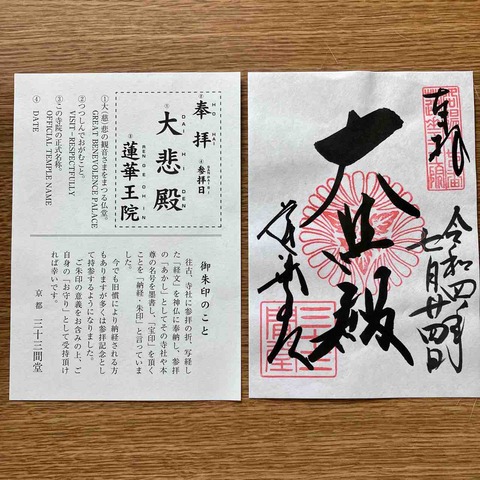 ②
HO HAI
奉拝
④参拝日
①
DAI HI DEN
大悲殿
③
RENGE OHIN
蓮華王院
①大（慈）悲の観音さまをまつる仏堂。
GREAT BENEVOLENCE PALACE
②つつしんでおがむこと。
VISIT-RESPECTFULLY
③この寺院の正式名称。
OFFICIAL TEMPLE NAME
④
DATE
御朱印のこと
往古、寺社に参拝の折、写経し
た「経文」を神仏に奉納し、参拝
の「あかし」としてその寺社や本
尊の名号を墨書し、「宝印」を頂く
ことを「納経・朱印」と言っていま
した。
今でも旧慣により納経される方
もありますが多くは参拝記念とし
て持参するようになりました。
ご朱印の意義をお含みの上、ご
自身の「お守り」として受持頂け
れば幸いです。
京都 三十三間堂
奉拝
令和四年
七月廿四日
大悲殿
蓮華王院
三十三間堂